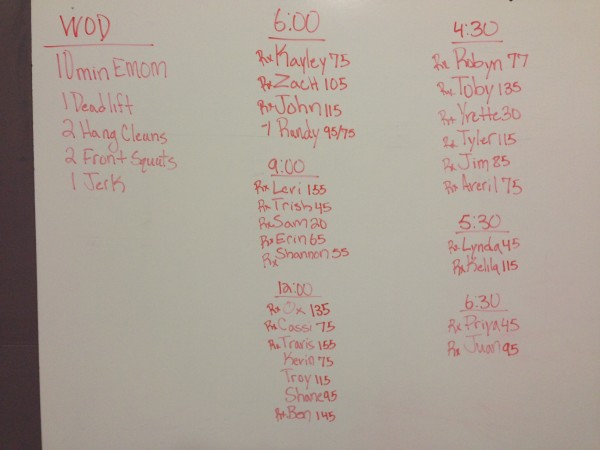 WOD
10min EMOM
1 Deadlift
2 Hang Cleans
2 Front Squats
1 Jerk
6:00
Rx Kayley 75
Rx Zach 105
Rx John 115
7 Randy 95/75
9:00
Rx Levi 155
Rx Trish 45
Rx Sam 20
Rx Erin 65
Rx Shannon 55
12:00
Rx Ox 135
Rx Cassi 75
Rx Travis 155
Kevin 75
Troy 115
Shane 95
Rx Ben 145
4:30
Rx Robyn 77
Rx Toby 135
Rx Yvette 30
Rx Tyler 115
Rx Jim 85
Rx Averil 75
5:30
Rx Lynda 45
Rx Kelila 115
6:30
Rx Priya 45
Rx Juan 95